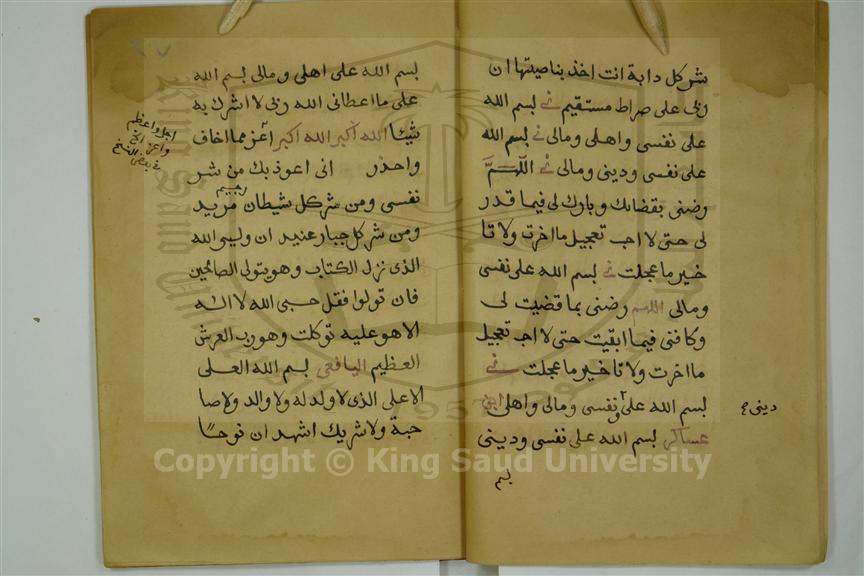 شر كل دابة انت اخذ بناصيتها ان
ربى على صراط مستقيم في بسم الله
على نفسى واهلى ومالى في بسم الله
على نفسى ودينى ومالى في اللهم
رضنى بقضائك وبارك لى فيما قدر
لى حتى لا احب تعجيل ما اخرت ولا تا
خير ما عجلت في بسم الله على نفسى
ومالى اللهم رضنى بما قضيت لى
وكافنى فيما ابقيت حتى لا احب تعجيل
ما اخرت ولا تاخير ما عجلت في
بسم الله على نفسى ومالى واهلى ابن
عساكر بسم الله على نفسى ودينى
بسم
دينى
بسم الله على اهلى ومالى بسم الله
على ما اعطانى الله ربى لا اشرك به
شيئا الله اكبر الله اكبر اعز مما اخاف
واحذر انى اعوذ بك من شر
نفسى ومن شر كل شيطان مريد
رجيم
ومن شر كل جبار عنيد ان وليى الله
الذى نزل الكتاب وهو يتولى الصالحين
فان تولوا فقل حسبى الله لا اله
الا هو عليه توكلت وهو رب العرش
العظيم اليافعى بسم الله العلى
الاعلى الذى لا ولد له ولا والد ولا صا
حبة ولا شريك اشهد ان نوحا
اجل واعظم
واعز الخ
في بعض النسخ
Copyright © King Saud University